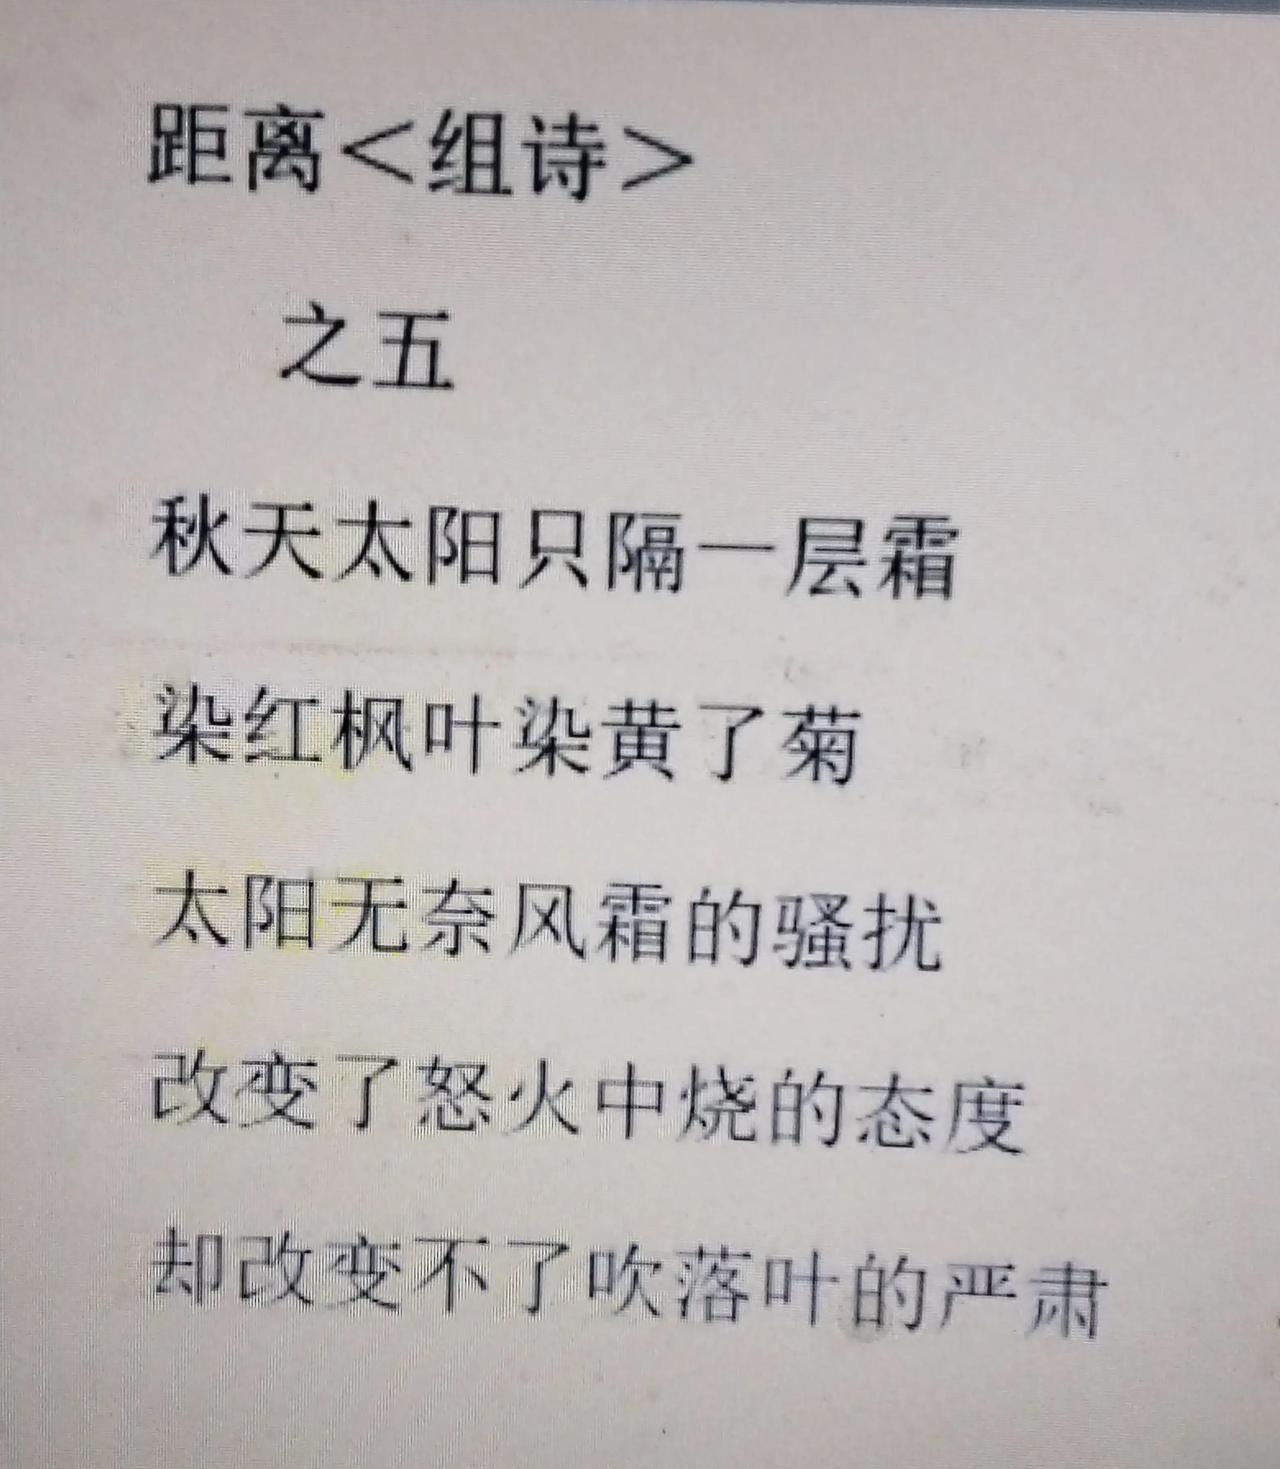 距离<组诗>
之五
秋天太阳只隔一层霜
染红枫叶染黄了菊
太阳无奈风霜的骚扰
改变了怒火中烧的态度
却改变不了吹落叶的严肃